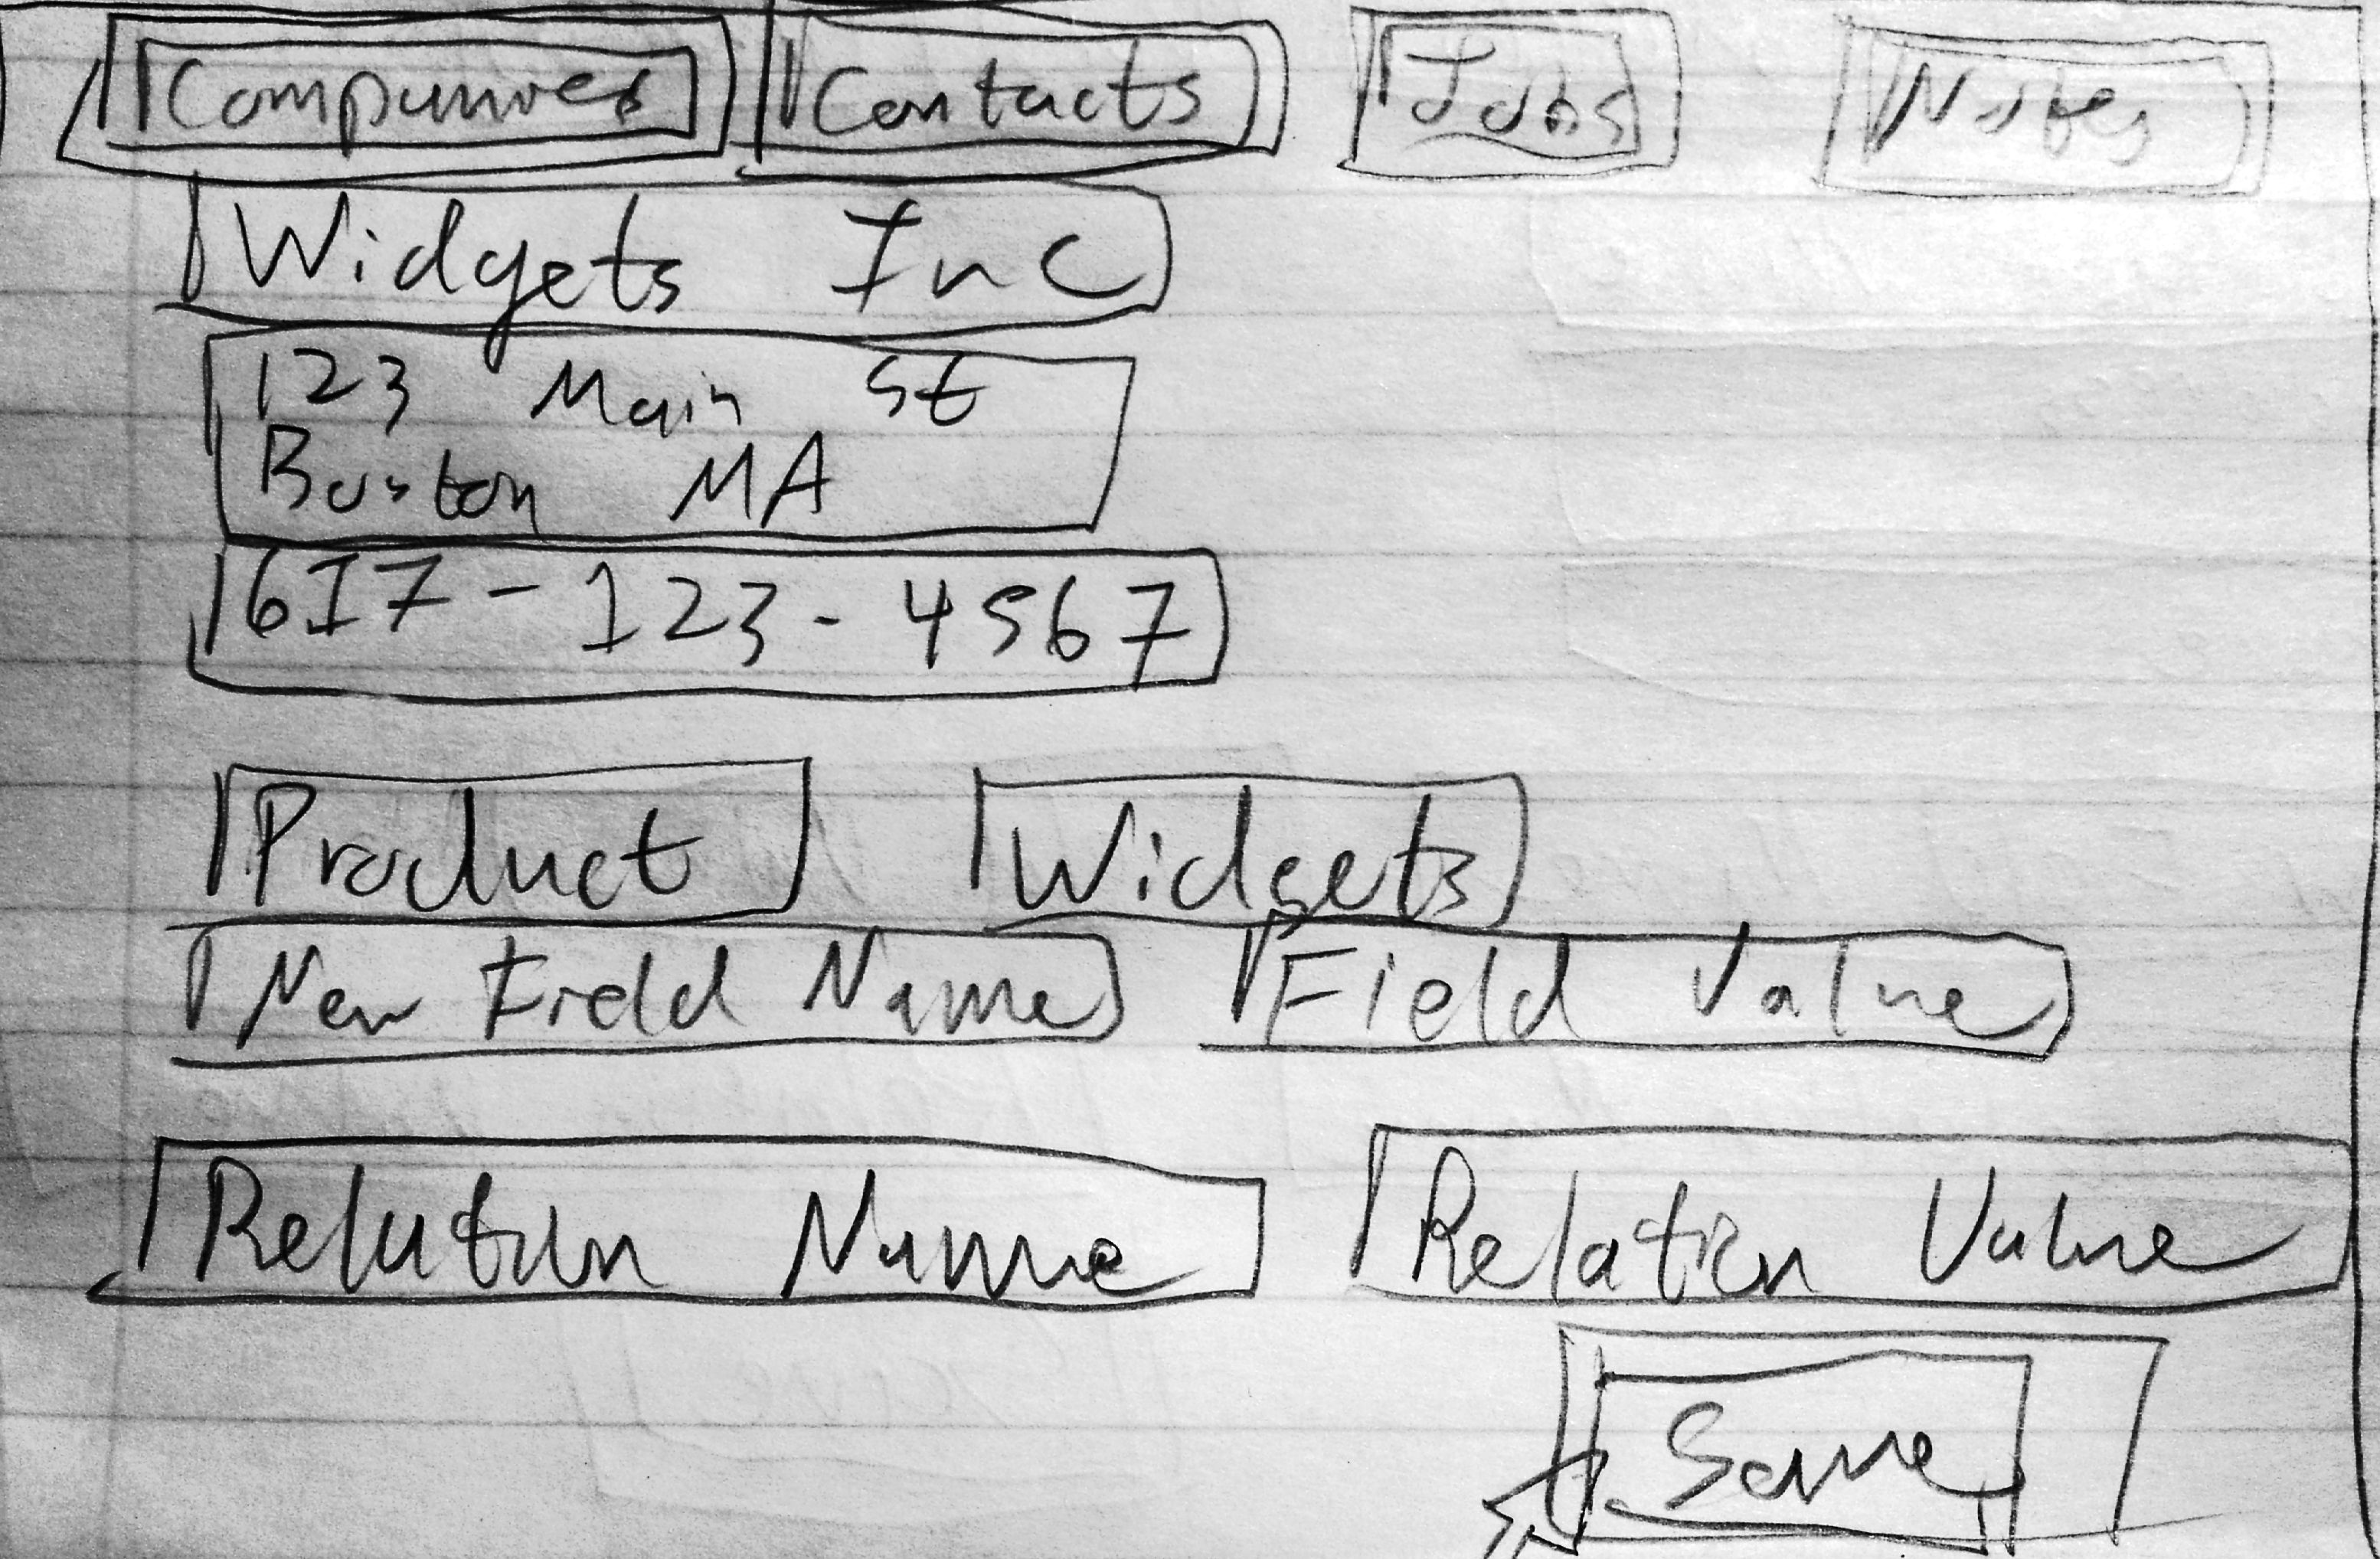 Companies Contacts Jobs Notes
Widgets Inc
123 Main St
Boston MA
617-123-4567
Product Widgets
New Field Name Field Value
Relation Name Relation Value
Save